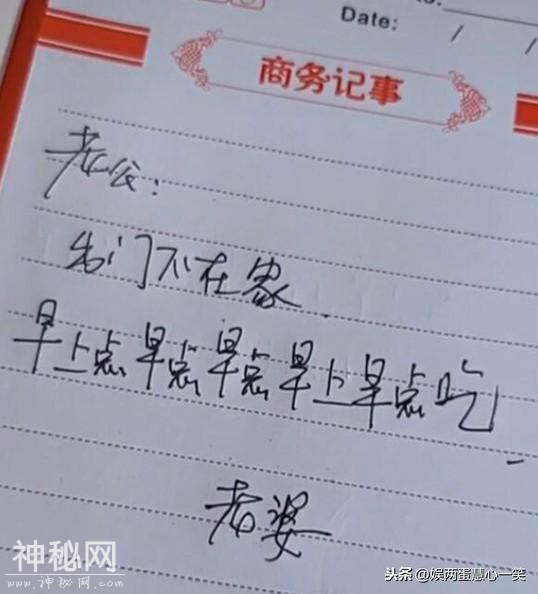 Date: / /
商务记事
老公:
出门不在家.
早上点早点早点早上早点吃.
老婆
神秘网
www.神秘网.com
头条@娱两蛋慧心一笑